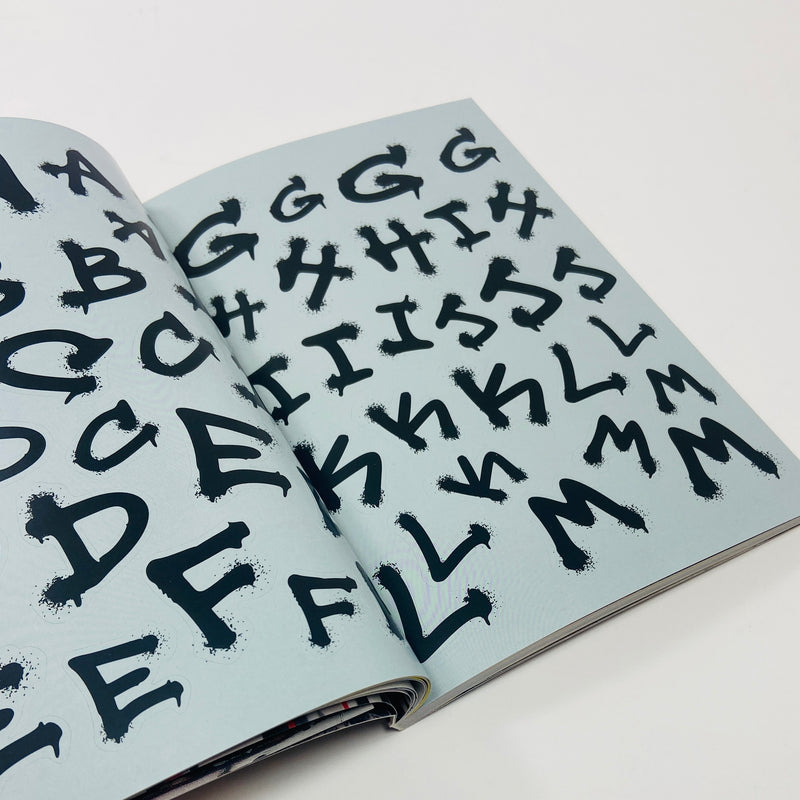 A
A
B
C C
C E
D
F F
E
E
G G G G
H H H I H
I I I J J J
K K K L L
K M M M
L
L